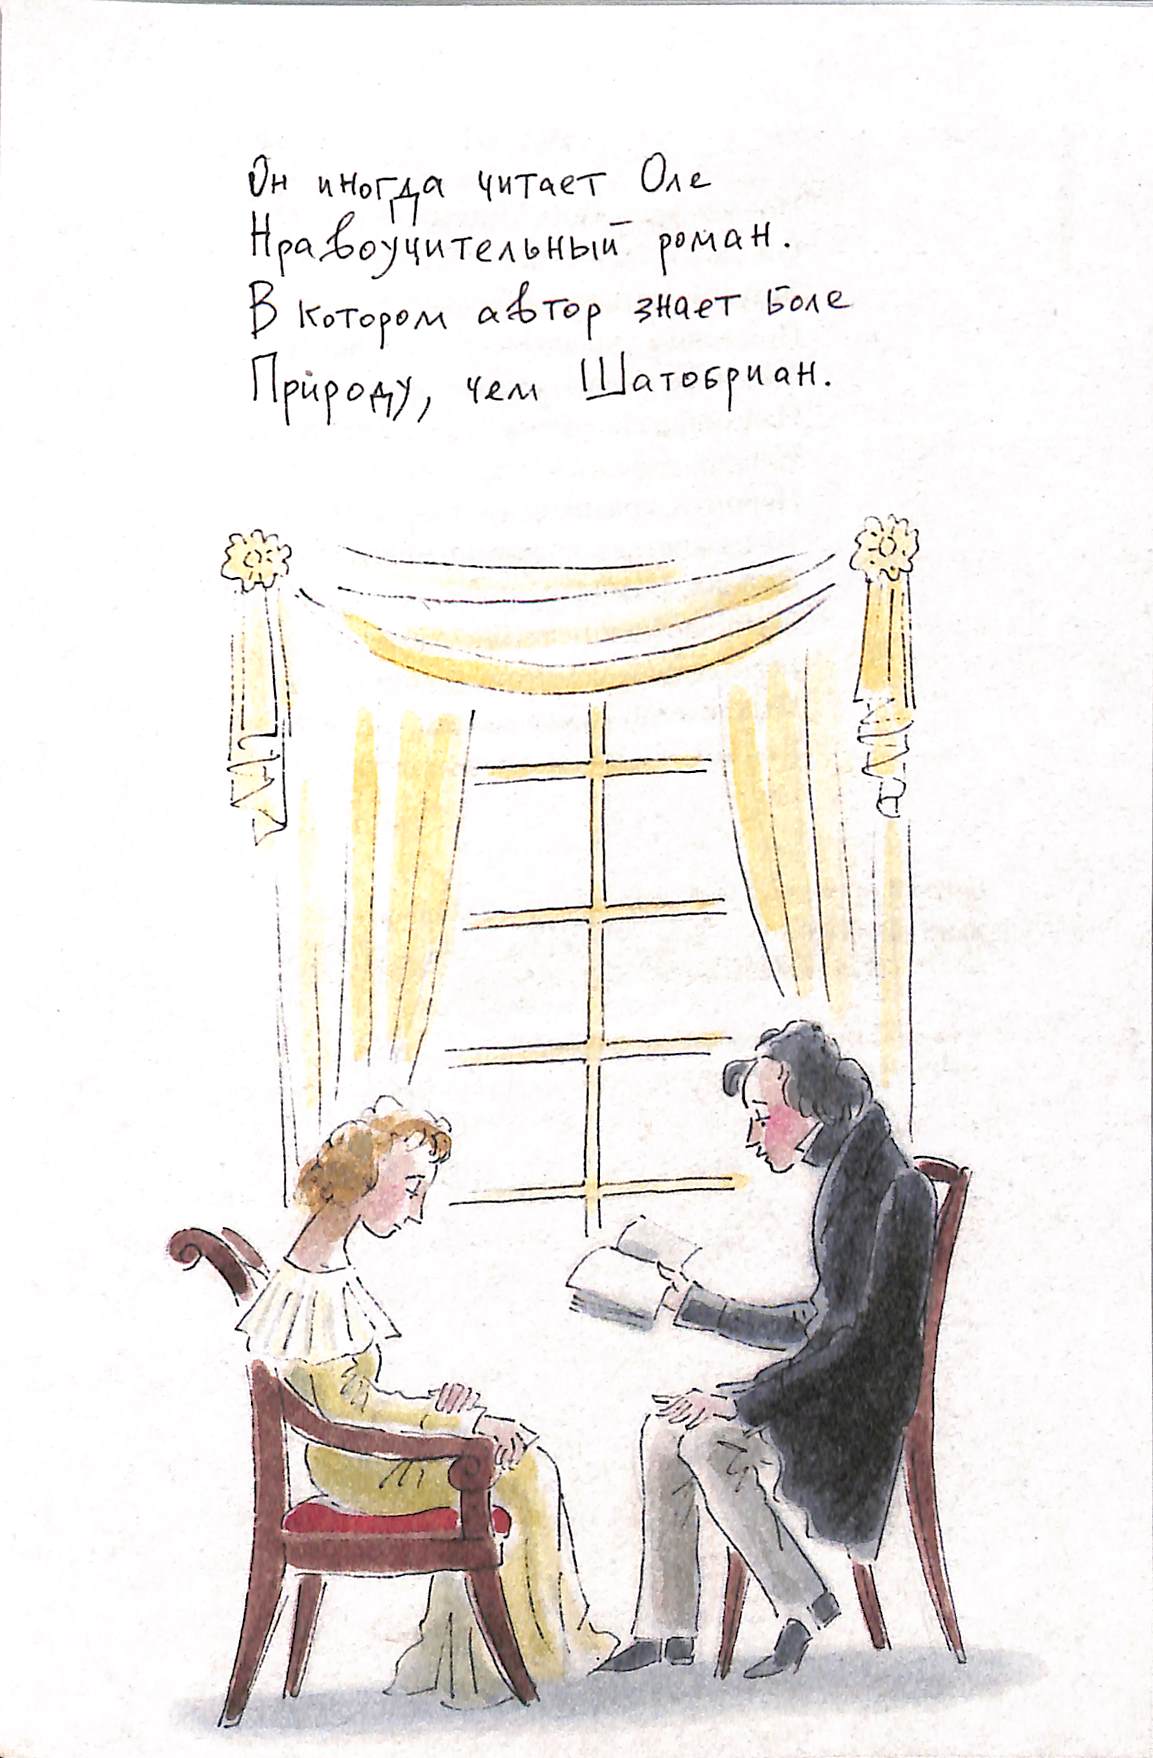 Он иногда читает Оле
Нравоучительный роман.
В котором автор знает боле
Природу, чем Шатобриан.